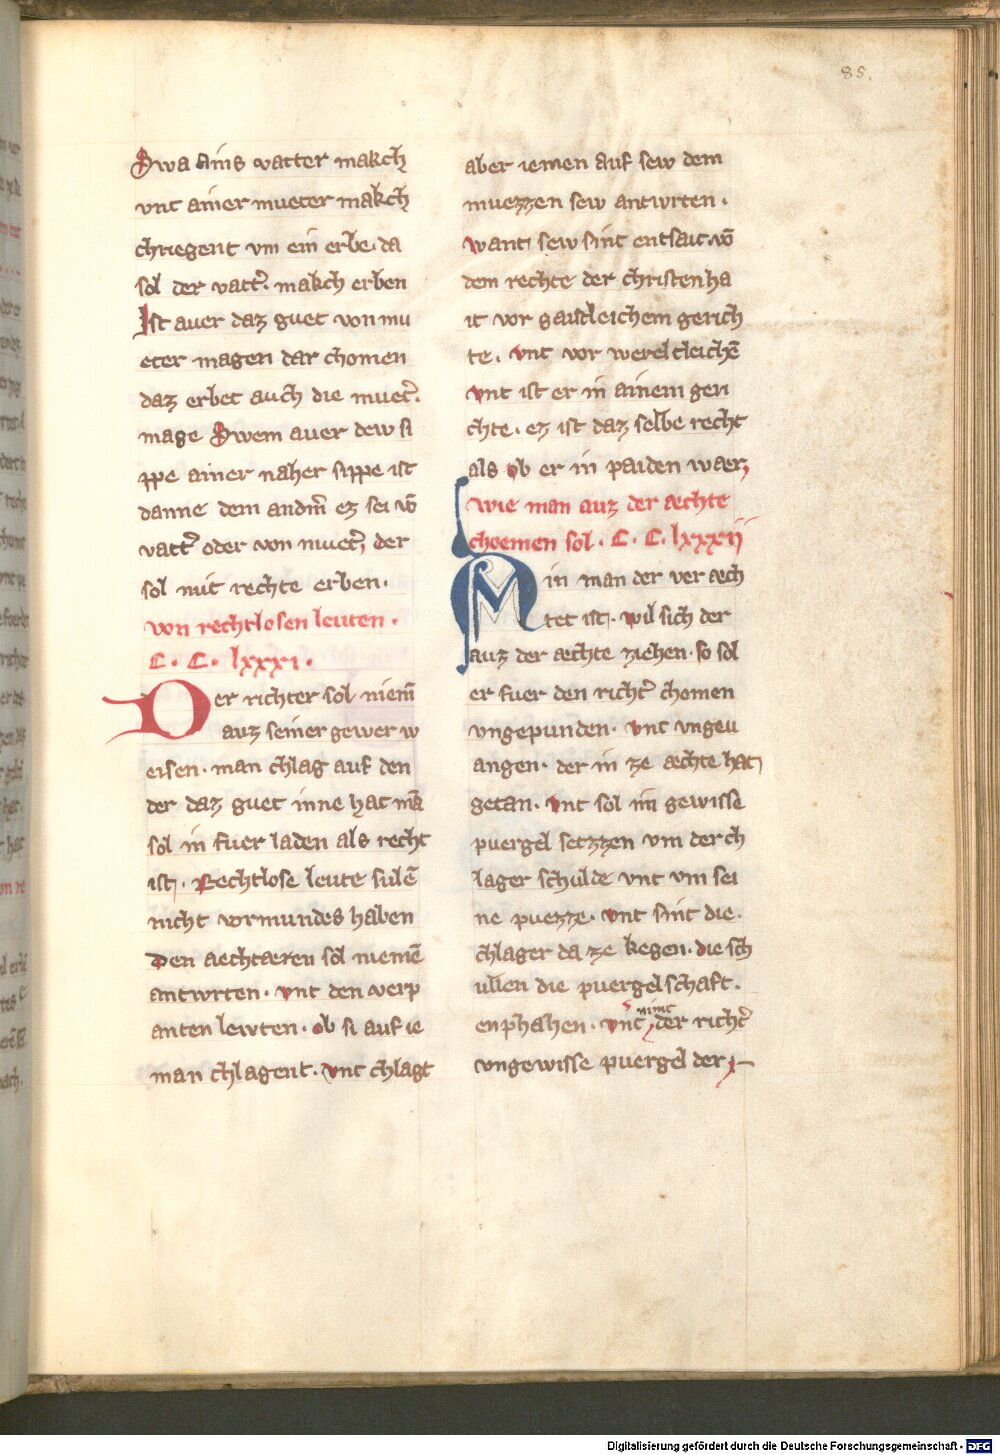 85.
Swa ains vatter makch
vnt ainer mueter makch
chriegent vm ein erbe. da
sol der vatt̉. makch erben
Ist auer daz guet von mu
eter magen dar chomen
daz erbet auch die muet̉.
mage Swem auer dew si
ppe ainer naher sippe ist
danne dem andm̄ ez sei vō
vatt̉ oder von muet̉, der
sol mit rechte erben.
von rechtlosen leuten.
C. C. lxxxi.
Der richter sol niem̄
auz seiner gewer w
eisen. man chlag auf den
der daz guet inne hat mā
sol in fuer laden als recht
ist. Rechtlose leute sulē
nicht vormundes haben
Den aechtaeren sol niemē
antwrten. vnt den verp
anten lewten. ob si auf ie
man chlagent. vnt chlagt
aber iemen auf sew dem
muezzen sew antwrten.
want sew sint entsait vō
dem rechte der christenha
it vor gaistleichem gerich
te. vnt vor werltleichē
vnt ist er in ainem geri
chte. ez ist daz selbe recht
als ob er in paiden waer,
wie man auz der aechte
choemen sol. C. C. lxxxij
Min man der ver aech
tet ist. wil sich der
auz der aechte ziehen. so sol
er fuer den richt̉ chomen
vngepunden. vnt vngeu
angen. der in ze aechte hat
getan. vnt sol im gewisse
puergel setzzen vm der ch
lager schulde vnt vm sei
ne puezze. vnt sint die.
chlager da ze kegen. die sch
ullen die puergelschaft.
enphahen. vnt nimt der richt̉
vngewisse puergel der
Digitalisierung gefördert durch die Deutsche Forschungsgemeinschaft - DFG